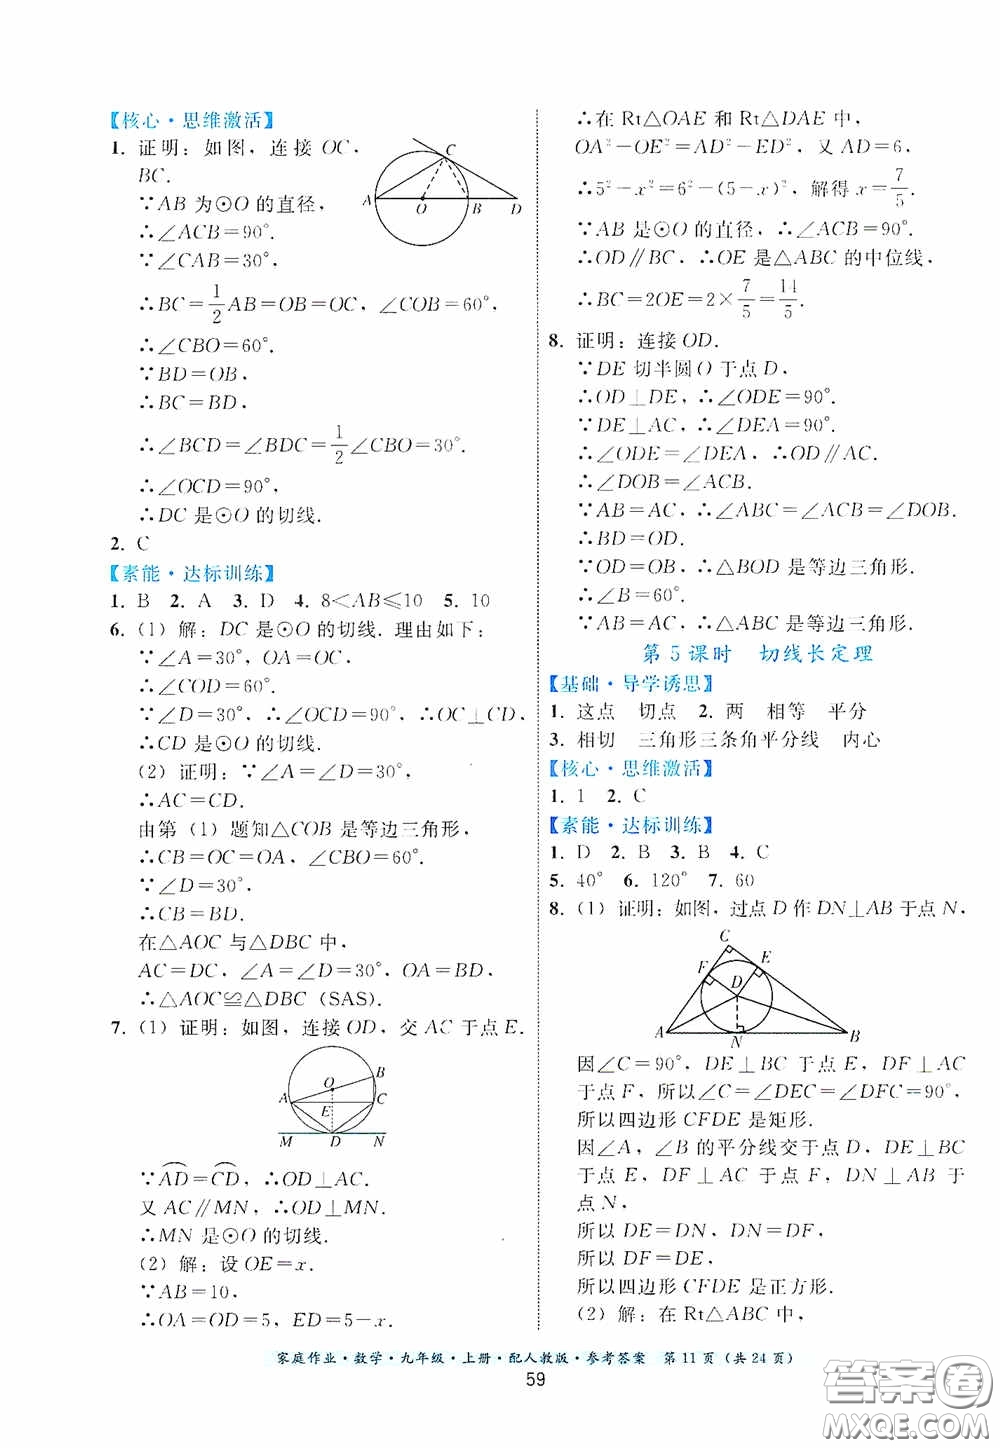 【核心·思维激活】
1. 证明：如图，连接OC，
BC.
∵AB 为⊙O 的直径，
∴∠ACB=90°.
∵∠CAB=30°，
∴BC=1/2AB=OB=OC，∠COB=60°.
∴∠CBO=60°.
∵BD=OB，
∴BC=BD，
∴∠BCD=∠BDC=1/2∠CBO=30°.
∴∠OCD=90°，
∴DC 是⊙O 的切线.
C
A
O
B
D
2. C
【素能·达标训练】
1. B 2. A 3. D 4. 8<AB≤10 5. 10
6. (1) 解：DC 是⊙O 的切线. 理由如下：
∵∠A=30°，OA=OC，
∴∠COD=60°.
∵∠D=30°，∴∠OCD=90°，∴OC⊥CD，
∴CD 是⊙O 的切线.
(2) 证明：∵∠A=∠D=30°，
∴AC=CD.
由第 (1) 题知△COB 是等边三角形，
∴CB=OC=OA，∠CBO=60°.
∵∠D=30°，
∴CB=BD.
在△AOC 与△DBC 中，
AC=DC，∠A=∠D=30°，OA=BD，
∴△AOC≌△DBC (SAS).
7. (1) 证明：如图，连接 OD，交 AC 于点 E.
O
B
A
E
C
M
D
N
∵AD=CD，∴OD⊥AC.
又 AC∥MN，∴OD⊥MN.
∴MN 是⊙O 的切线.
(2) 解：设 OE=x.
∵AB=10，
∴OA=OD=5，ED=5-x，
∴在 Rt△OAE 和 Rt△DAE 中，
OA²-OE²=AD²-ED²，又 AD=6，
∴5²-x²=6²-(5-x)²，解得 x=7/5.
∵AB 是⊙O 的直径，∴∠ACB=90°.
∴OD∥BC，∴OE 是△ABC 的中位线，
∴BC=2OE=2×7/5=14/5.
8. 证明：连接 OD.
∵DE 切半圆 O 于点 D，
∴OD⊥DE，∴∠ODE=90°.
∵DE⊥AC，∴∠DEA=90°.
∴∠ODE=∠DEA，∴OD∥AC.
∴∠DOB=∠ACB.
∵AB=AC，∴∠ABC=∠ACB=∠DOB.
∴BD=OD.
∵OD=OB，∴△BOD 是等边三角形.
∴∠B=60°.
∵AB=AC，∴△ABC 是等边三角形.
第 5 课时 切线长定理
【基础·导学诱思】
1. 这点 切点 2. 两 相等 平分
3. 相切 三角形三条角平分线 内心
【核心·思维激活】
1. 1 2. C
【素能·达标训练】
1. D 2. B 3. B 4. C
5. 40° 6. 120° 7. 60
8. (1) 证明：如图，过点 D 作 DN⊥AB 于点 N，
C
F
E
D
A
N
B
因∠C=90°，DE⊥BC 于点 E，DF⊥AC
于点 F，所以∠C=∠DEC=∠DFC=90°，
所以四边形 CFDE 是矩形.
因∠A，∠B 的平分线交于点 D，DE⊥BC
于点 E，DF⊥AC 于点 F，DN⊥AB 于
点 N，
所以 DE=DN，DN=DF，
所以 DF=DE，
所以四边形 CFDE 是正方形.
(2) 解：在 Rt△ABC 中，
家庭作业·数学·九年级·上册·配人教版·参考答案 第 11 页（共 24 页）
59
答案圈
MXQE.COM